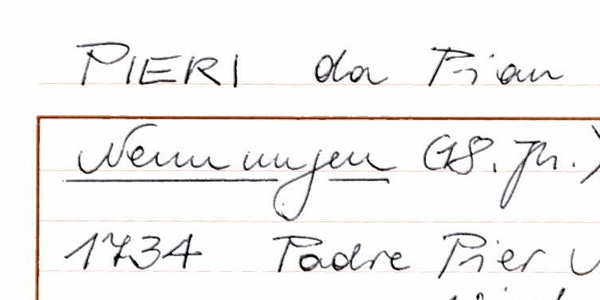 PIERI da Pian
Nennungen (18. Jh.)
1734 Padre Pier